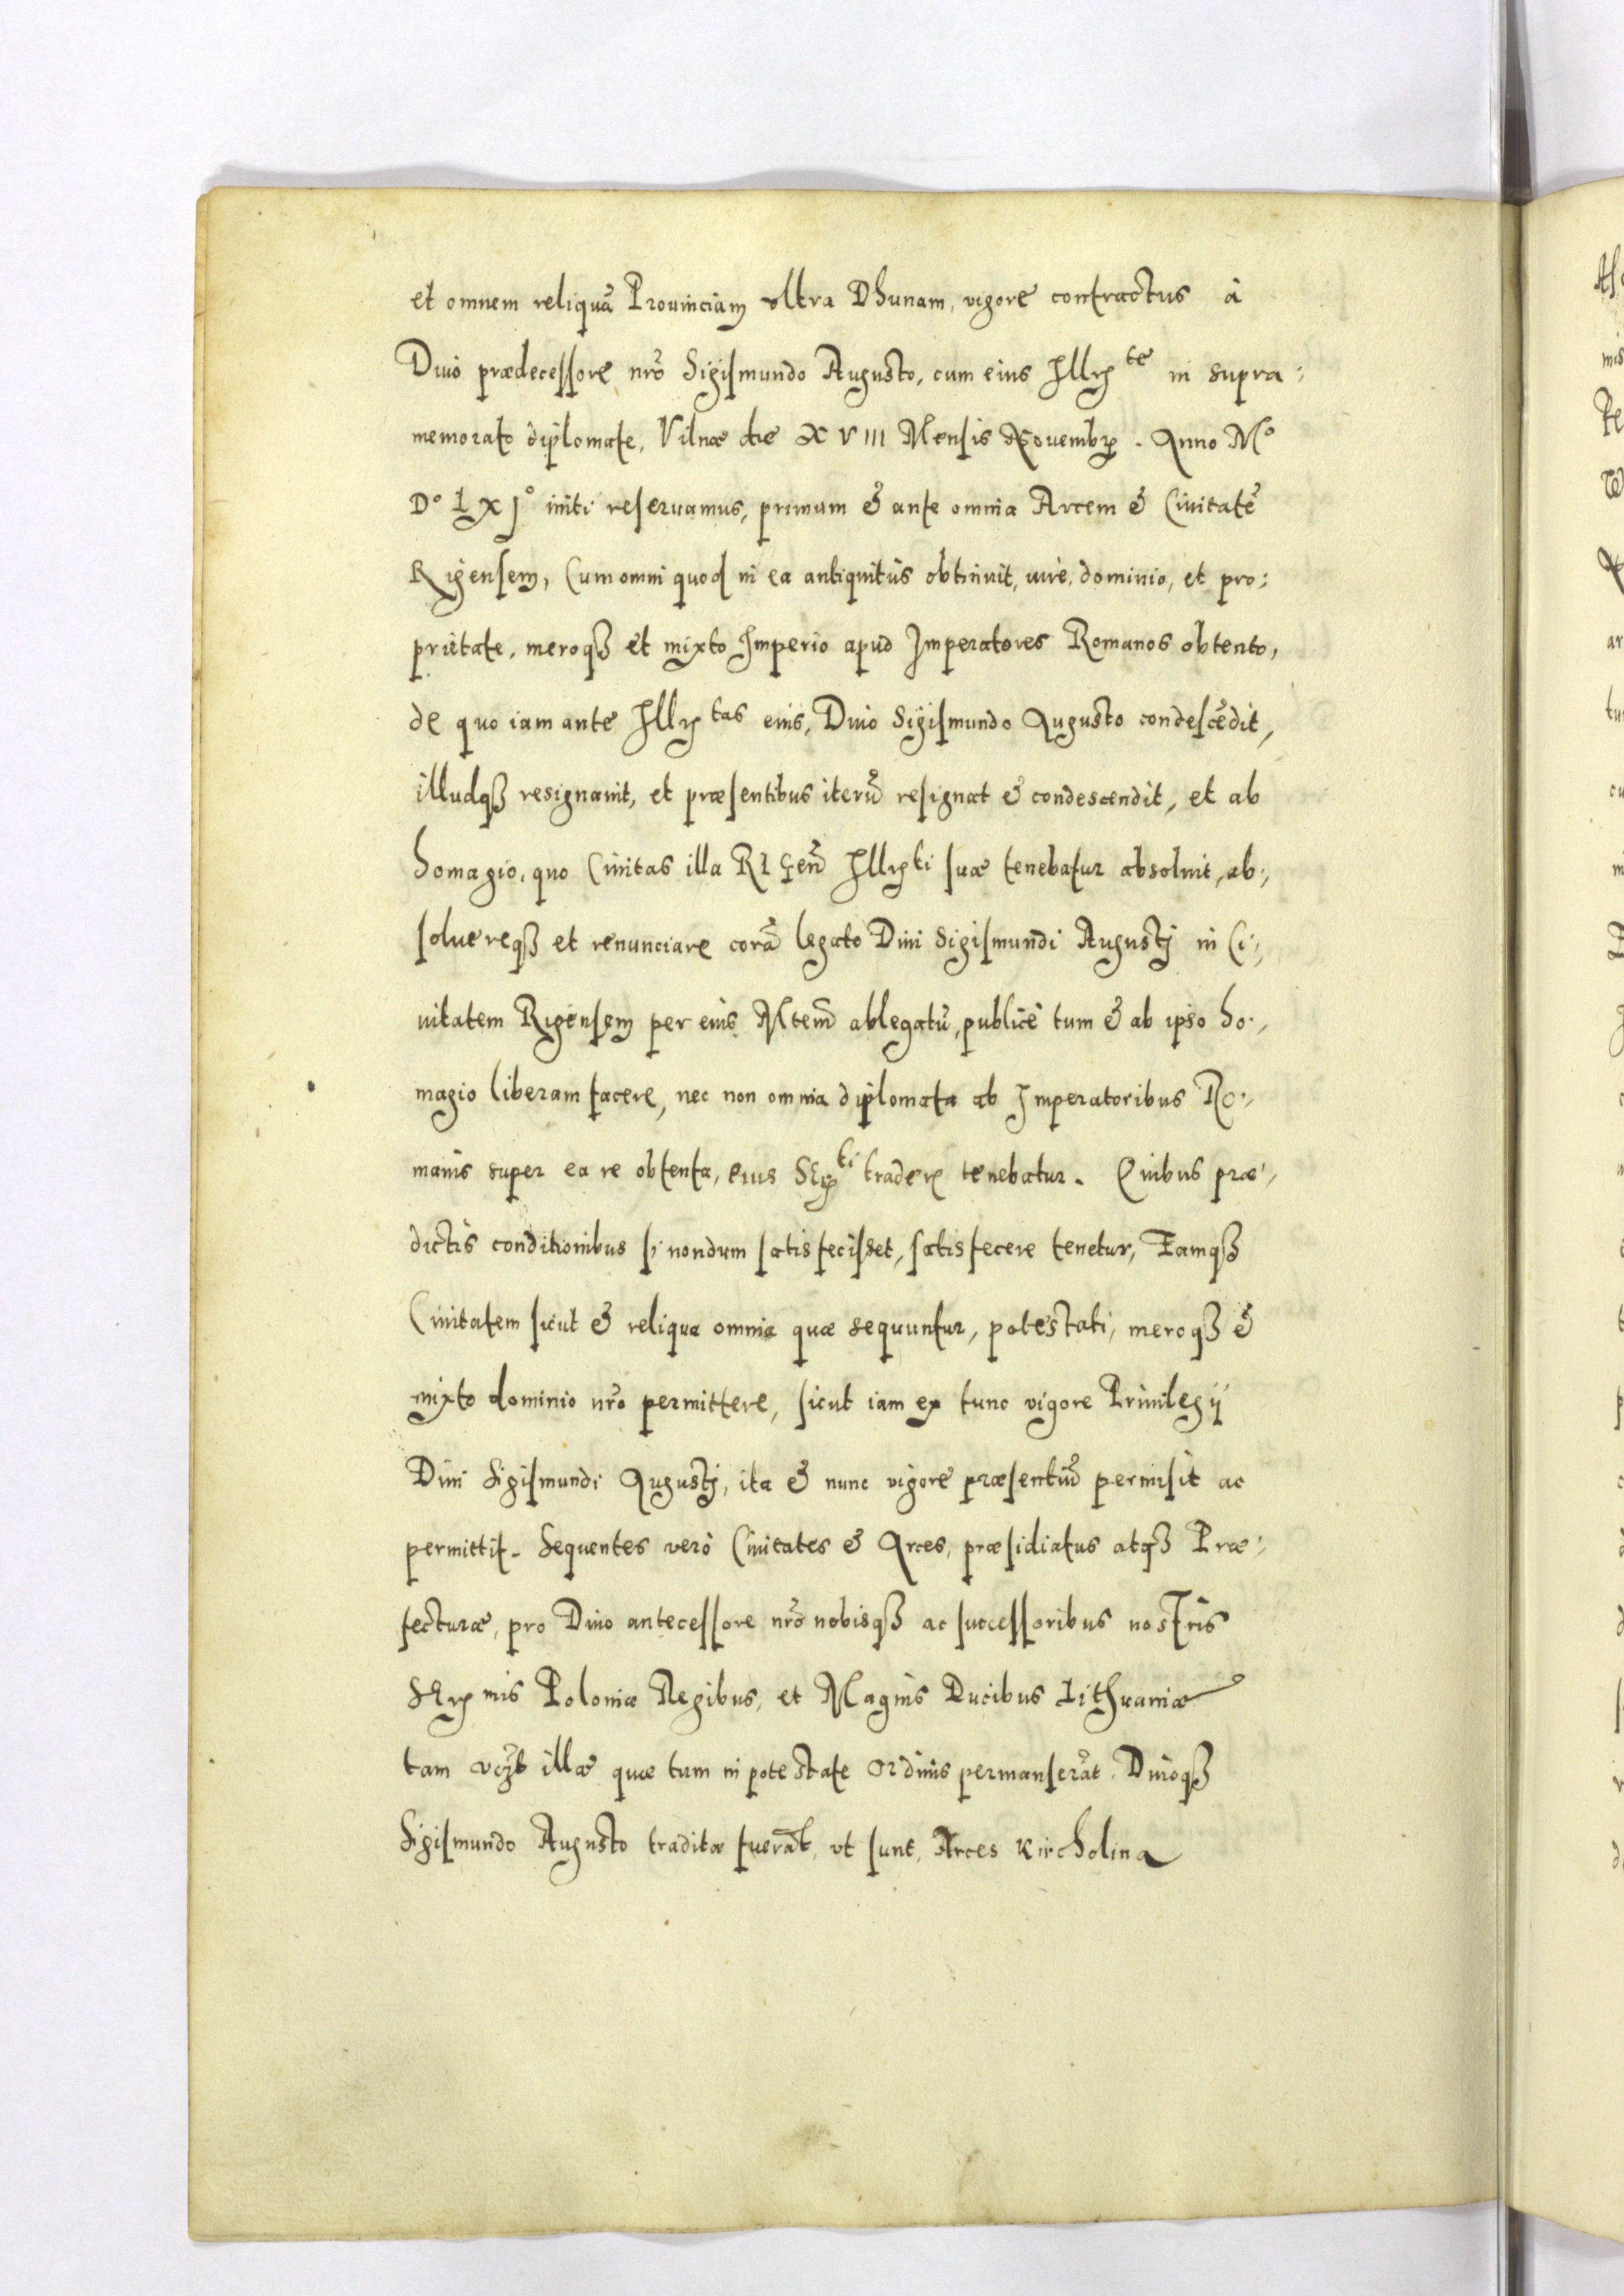 et omnem reliquā Prouinciam vltra Dhunam, vigore contractus à
Diuo prædecessore nr̄o Sigismundo Augusto, cum eius Illꝝte in supra:
memorato diplomate, Vilnæ die XVIII Mensis Nouembꝝ. Anno Mo
Do LXjo initi reseruamus, primum & ante omnia Arcem & Ciuitatē
Rigensem, Cum omni quod in ea antiquitùs obtinuit, iure, dominio, et pro:
prietate, meroqꝫ et mixto Imperio apud Imperatores Romanos obtento,
de quo iam ante Illꝝtas eius, Diuo Sigismundo Augusto condescēdit,
illudqꝫ resignauit, et præsentibus iterū resignat & condescendit, et ab
homagio, quo Ciuitas illa RIGen̄ Illꝝti suæ tenebatur absoluit, ab:,
soluereqꝫ et renunciare corā legato Diui Sigismundi Augustj in Ci:,
uitatem Rigensem per eius Mtem̄ ablegatū, publicè tum & ab ipso ho:,
magio liberam facere, nec non omnia diplomata ab Imperatoribus Ro:,
manis super ea re obtenta, eius SEꝝti tradere tenebatur. Quibus præ:,
dictis conditionibus si nondum satisfecisset, satisfecere tenetur, Eamqꝫ
Ciuitatem sicut & reliqua omnia quæ sequuntur, potestati, meroqꝫ &
mixto dominio nr̄o permittere, sicut iam ex tunc vigore Priuilegij
Diui Sigismundi Augustj, ita & nunc vigore præsentiū permisit ac
permittit. Sequentes verò Ciuitates & Arces, præsidiatus atqꝫ Præ:,
fecturæ, pro Diuo antecessore nr̄o nobisqꝫ ac successoribus nostris
SEꝝmis Poloniæ Regibus, et Magnis Ducibus Lithuaniæ
tam illæ quæ tum in potestate Ordinis permanserāt Diuoqꝫ
Sigismundo Augusto traditæ fuerāt, vt sunt, Arces Kircholina